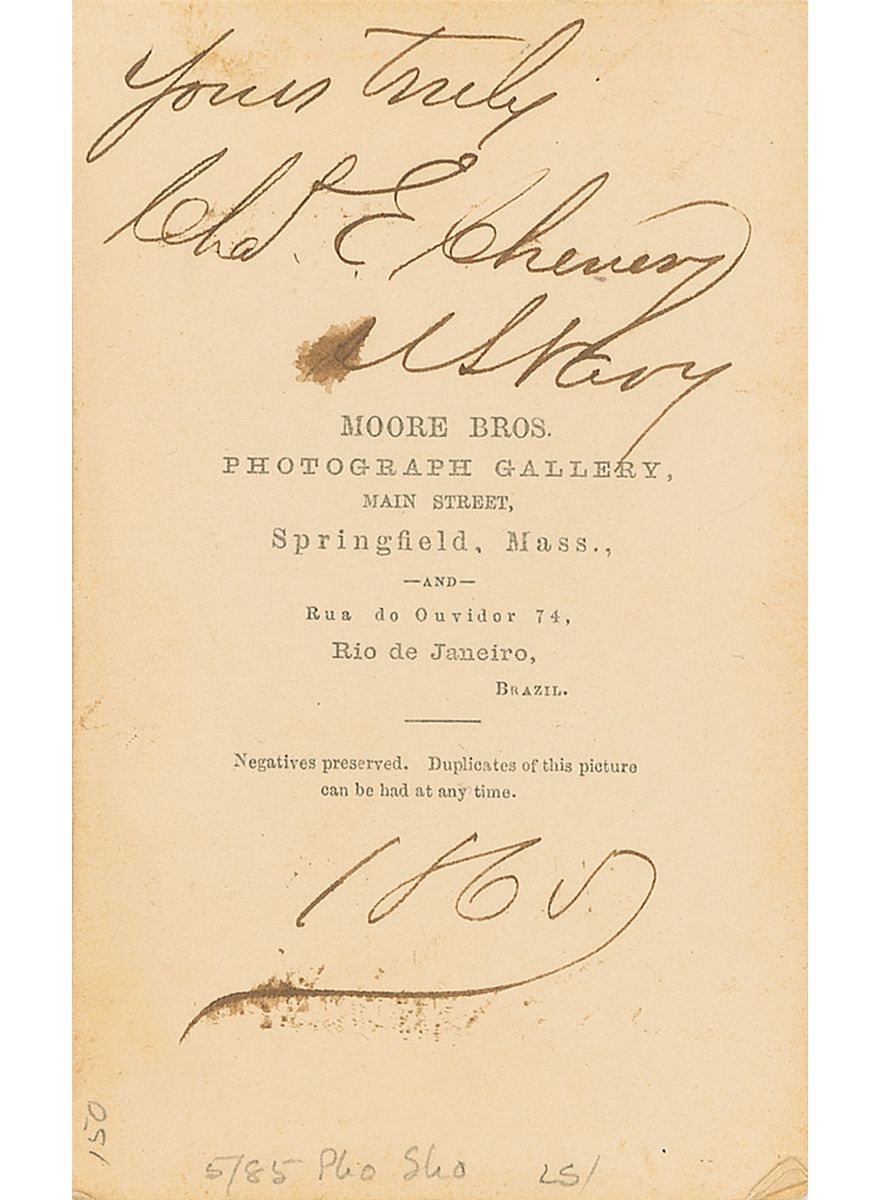 Yours Truly
Chas. E. Chenery
U S Navy
MOORE BROS.
PHOTOGRAPH GALLERY,
MAIN STREET,
Springfield, Mass.,
—AND—
Rua do Ouvidor 74,
Rio de Janeiro,
BRAZIL.
Negatives preserved. Duplicates of this picture
can be had at any time.
1865
150
5/85 Pho Sho